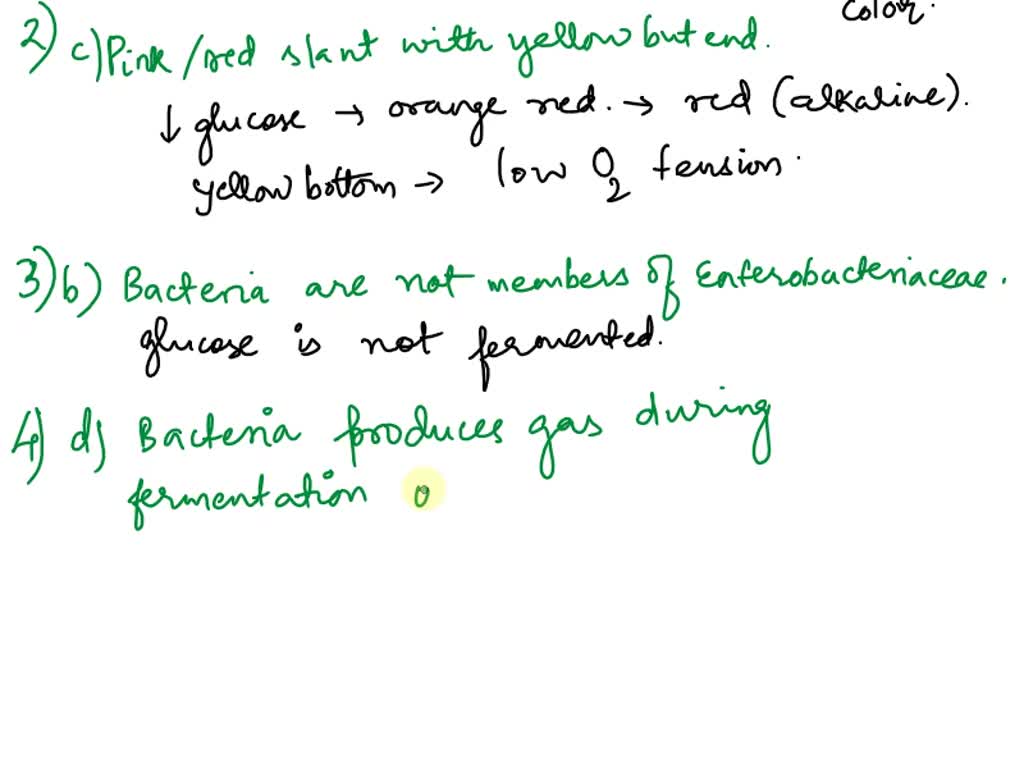 colour.
2) c) Pink/red slant with yellow but end.
↓ glucose → orange red. → red (alkaline).
yellow bottom → low O2 tension.
3) b) Bacteria are not members of Enterobacteriaceae.
glucose is not fermented.
4) d) Bacteria produces gas during
fermentation o